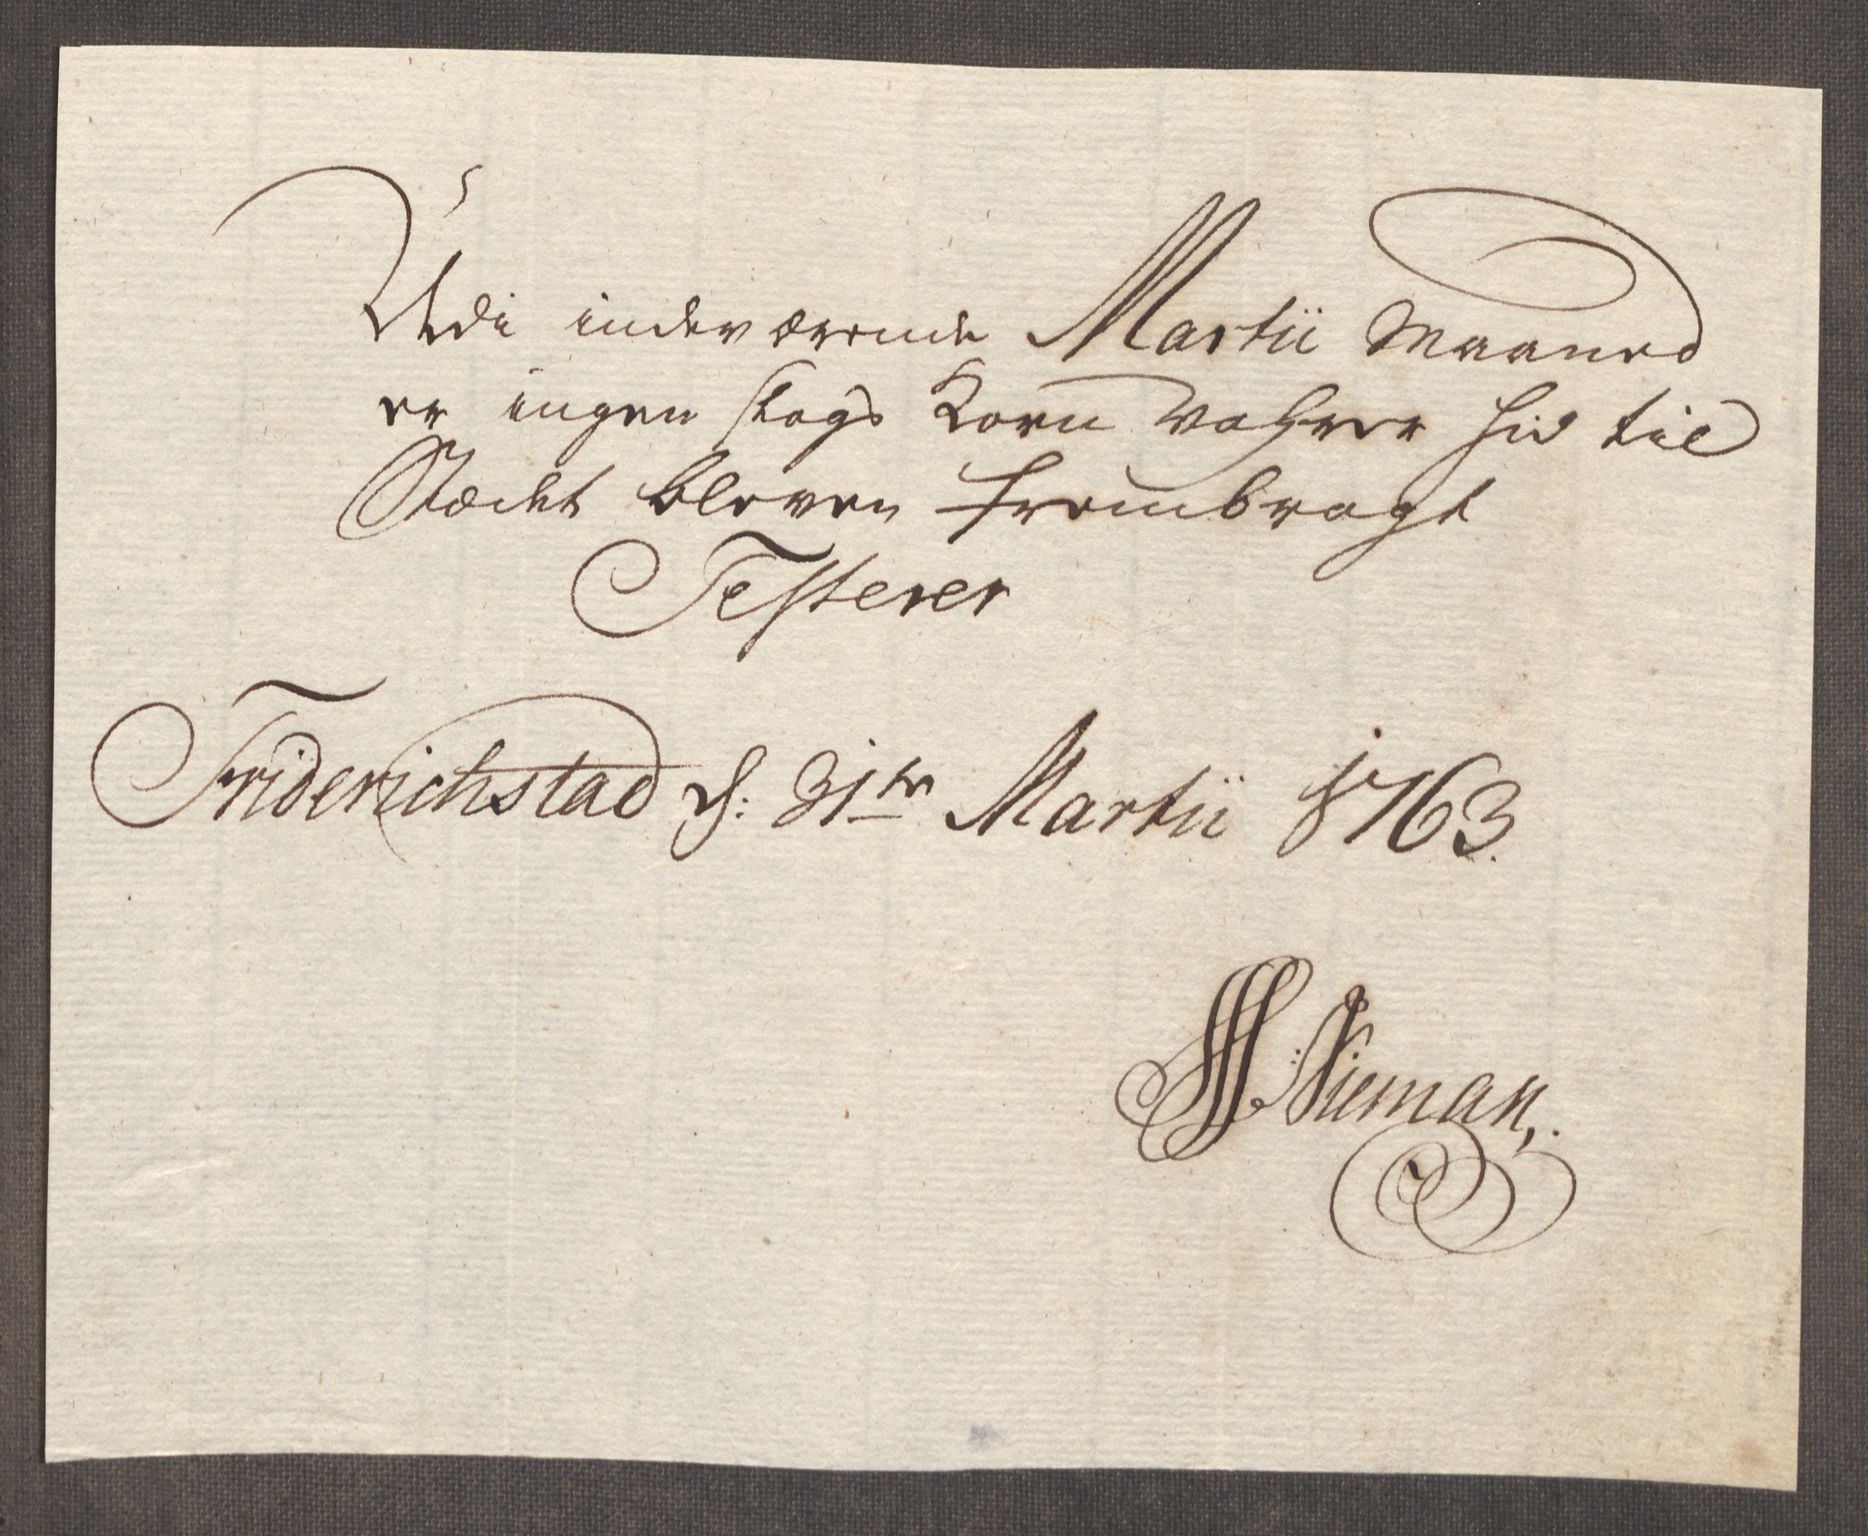 Udi indeværende Martii Maaned
er ingen slags Korn Vahrer hid til
Stædet bleven frembragt
Testerer
Friderichstad d: 31te Martii 1763.
Nieman,.